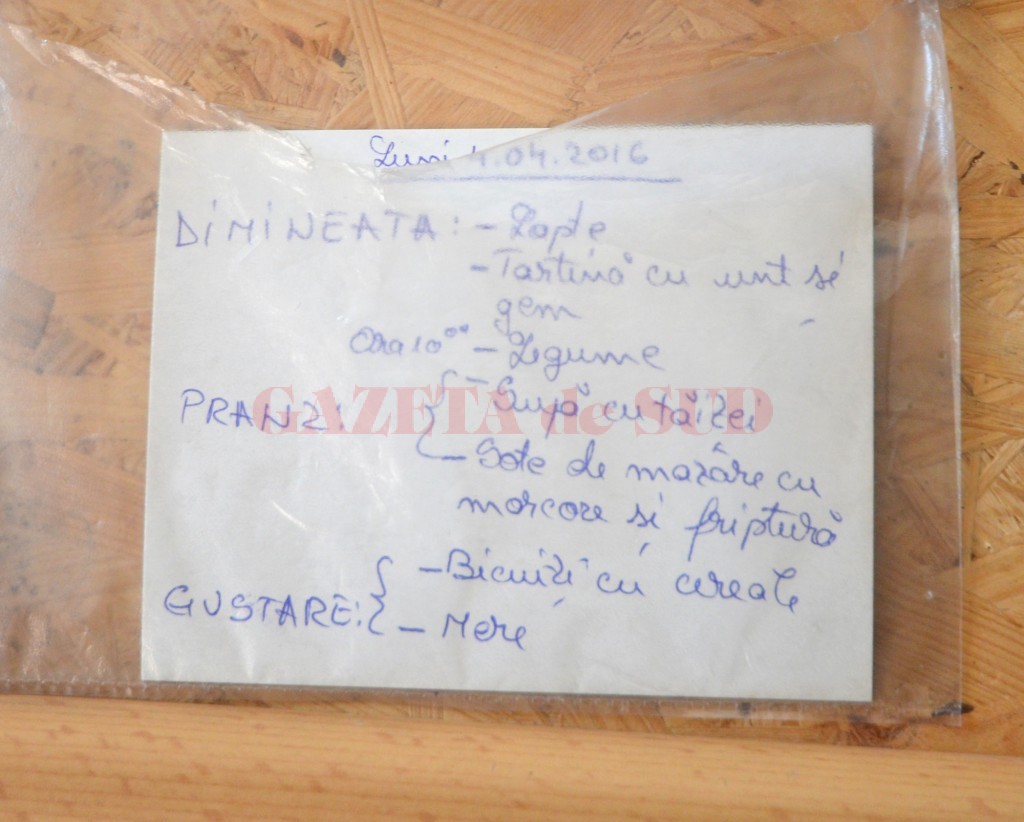 Luni 4.04.2016
DIMINEATA: - Lapte
- Tartină cu unt și
gem
Ora 10⁰⁰ - Legume
GAZETA de SUD
PRANZ: - Supă cu tăiței
- Sote de mazăre cu
morcove și friptură
- Bicuiți cu cereale
GUSTARE: - Mere